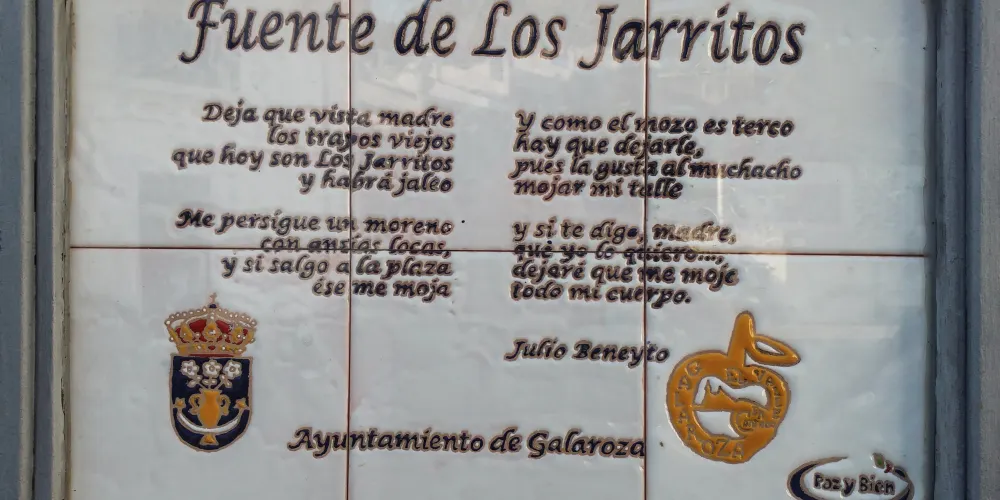 Fuente de Los Jarritos
Deja que vista madre
los trapos viejos
que hoy son Los Jarritos
y habrá jaleo
Me persigue un moreno
con ansias locas,
y si salgo a la plaza
ése me moja
Y como el mozo es terco
hay que dejarle,
pues la gusta al muchacho
mojar mi talle
y si te digo, madre,
que yo lo quiero...,
dejaré que me moje
todo mi cuerpo.
Julio Beneyto
Ayuntamiento de Galaroza
Paz y Bien